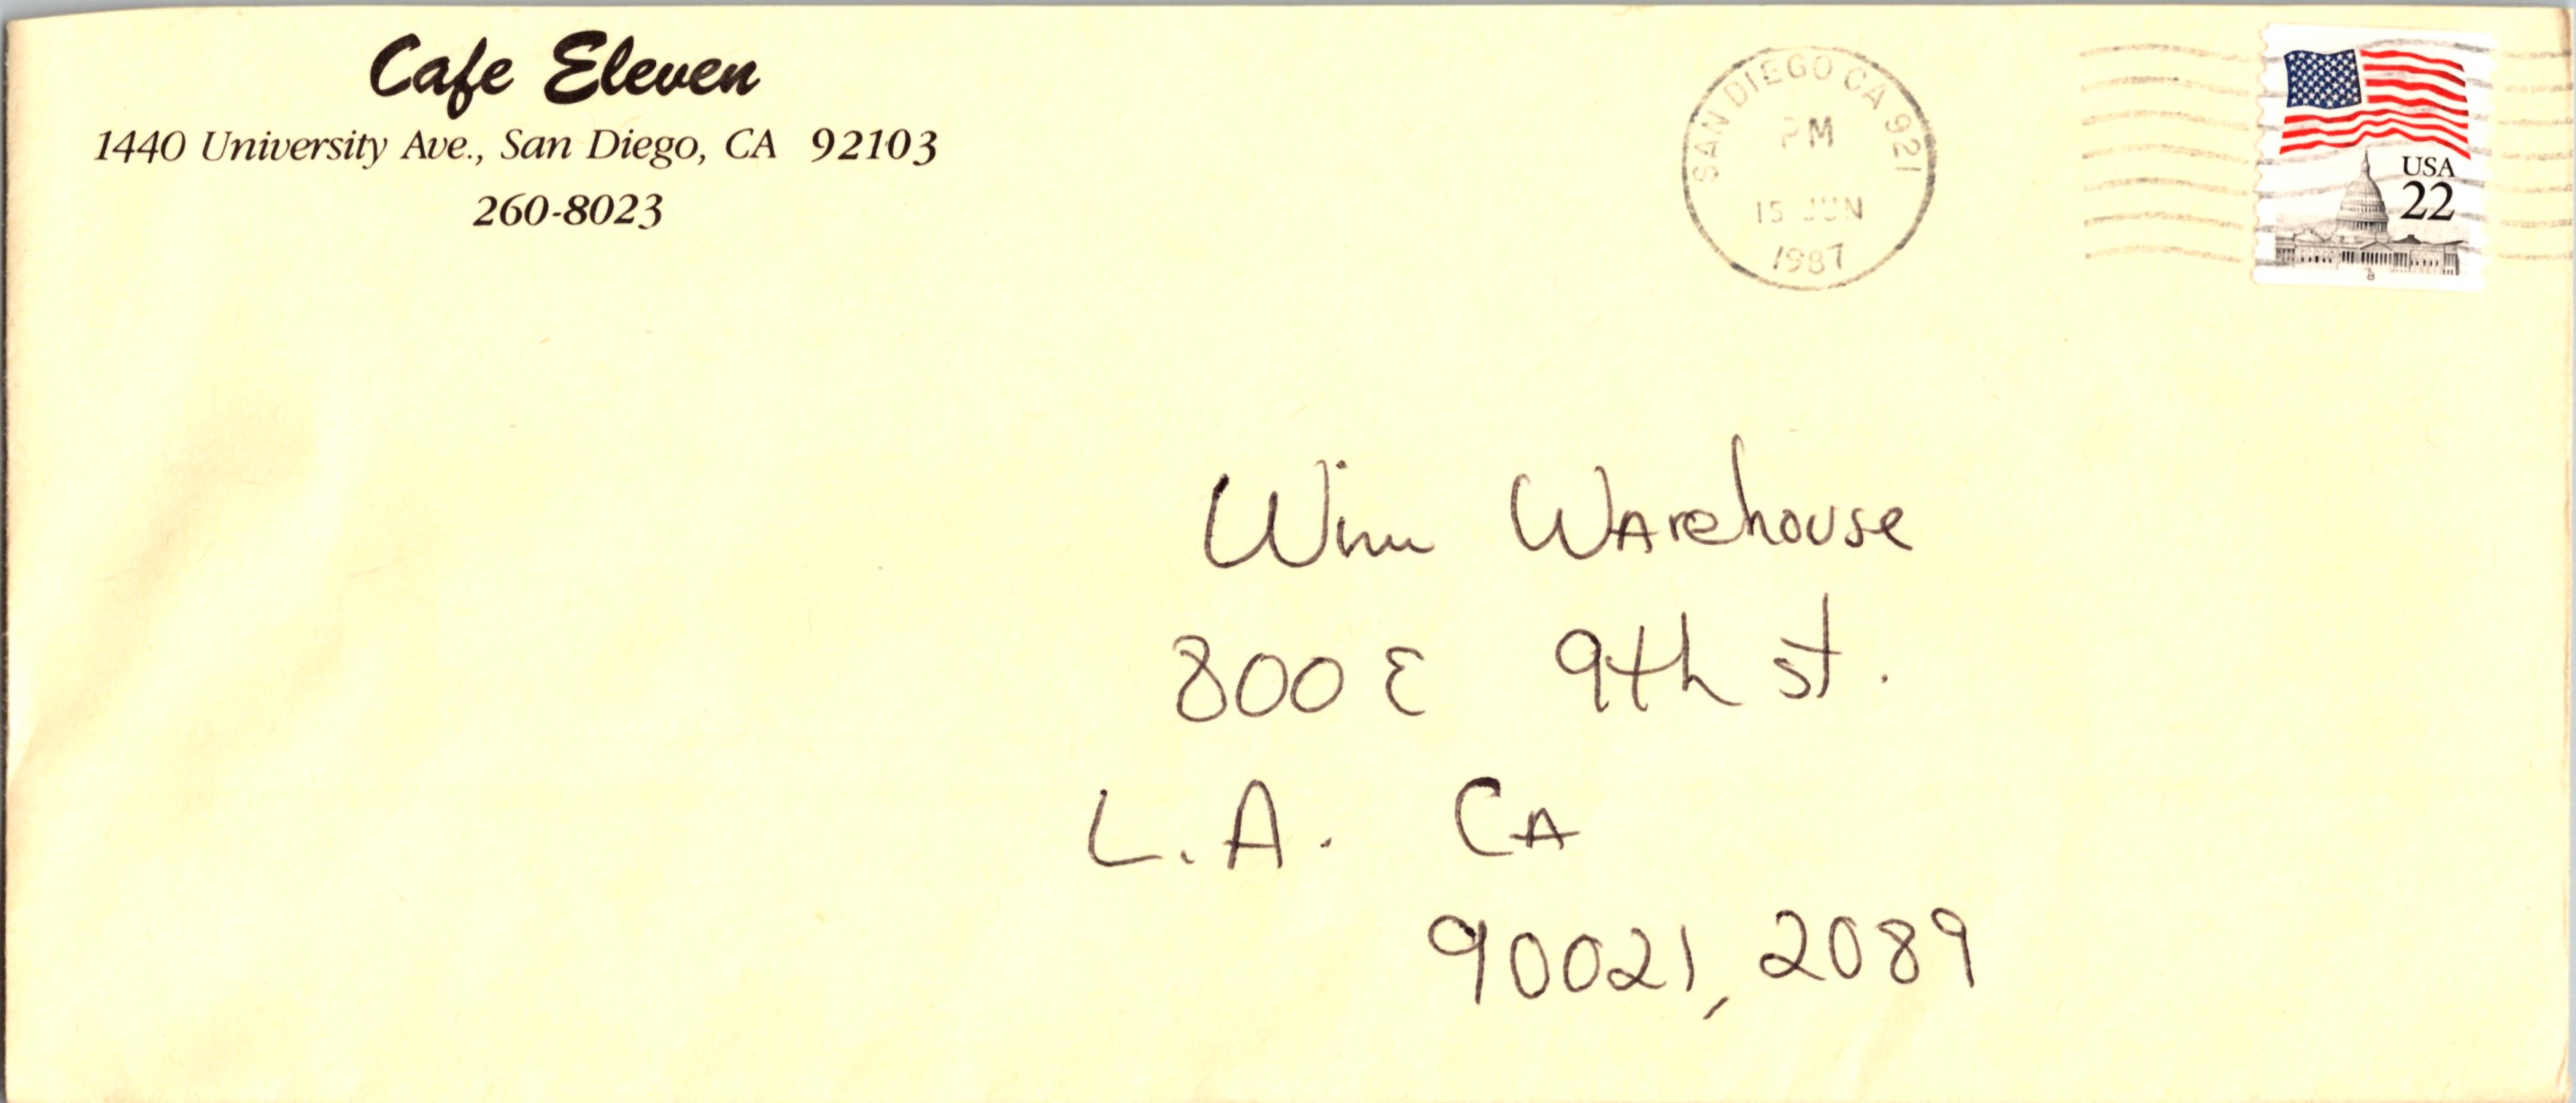 Cafe Eleven
1440 University Ave., San Diego, CA 92103
260-8023
SAN DIEGO CA 921
PM
15 JUN
1987
USA
22
Warehouse
800 E 9th st.
L.A. CA
90021, 2089